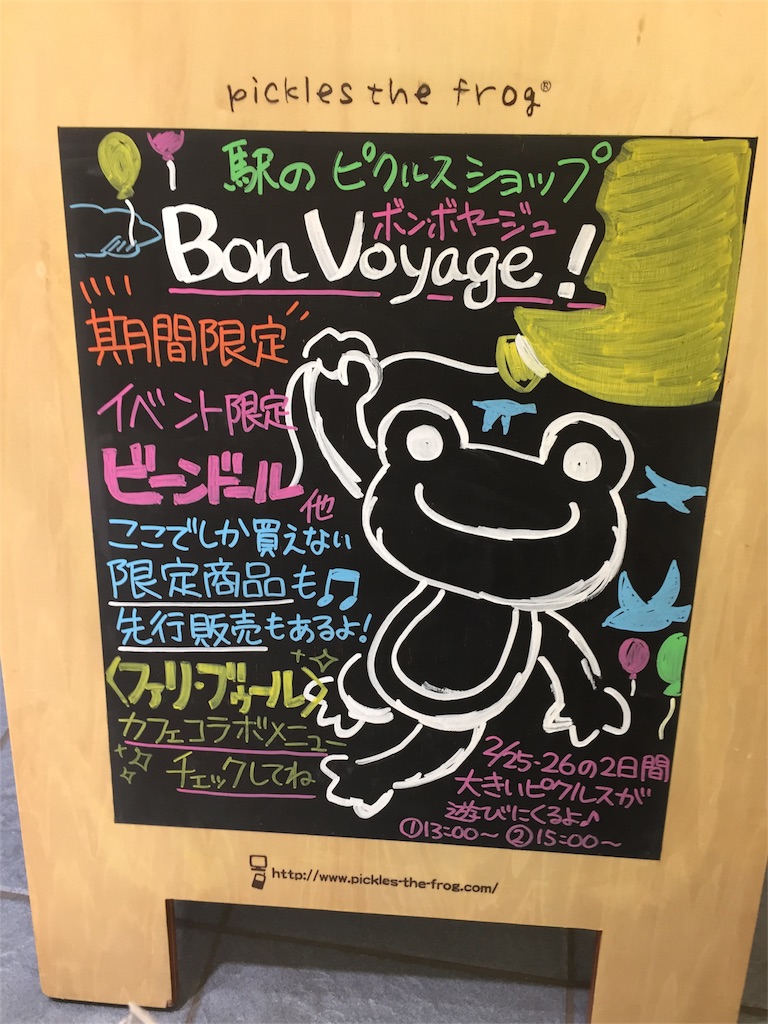 pickles the frog®
駅のピクルスショップ
ボン・ボヤージュ
Bon Voyage!
期間限定
イベント限定
ビーンドール
他
ここでしか買えない
限定商品も♫
先行販売もあるよ!
〈ファリ・ブゥール〉
カフェコラボメニュー
チェックしてね
2/25-26の2日間
大きいピクルスが
遊びにくるよ♪
①13:00〜 ②15:00〜
http://www.pickles-the-frog.com/